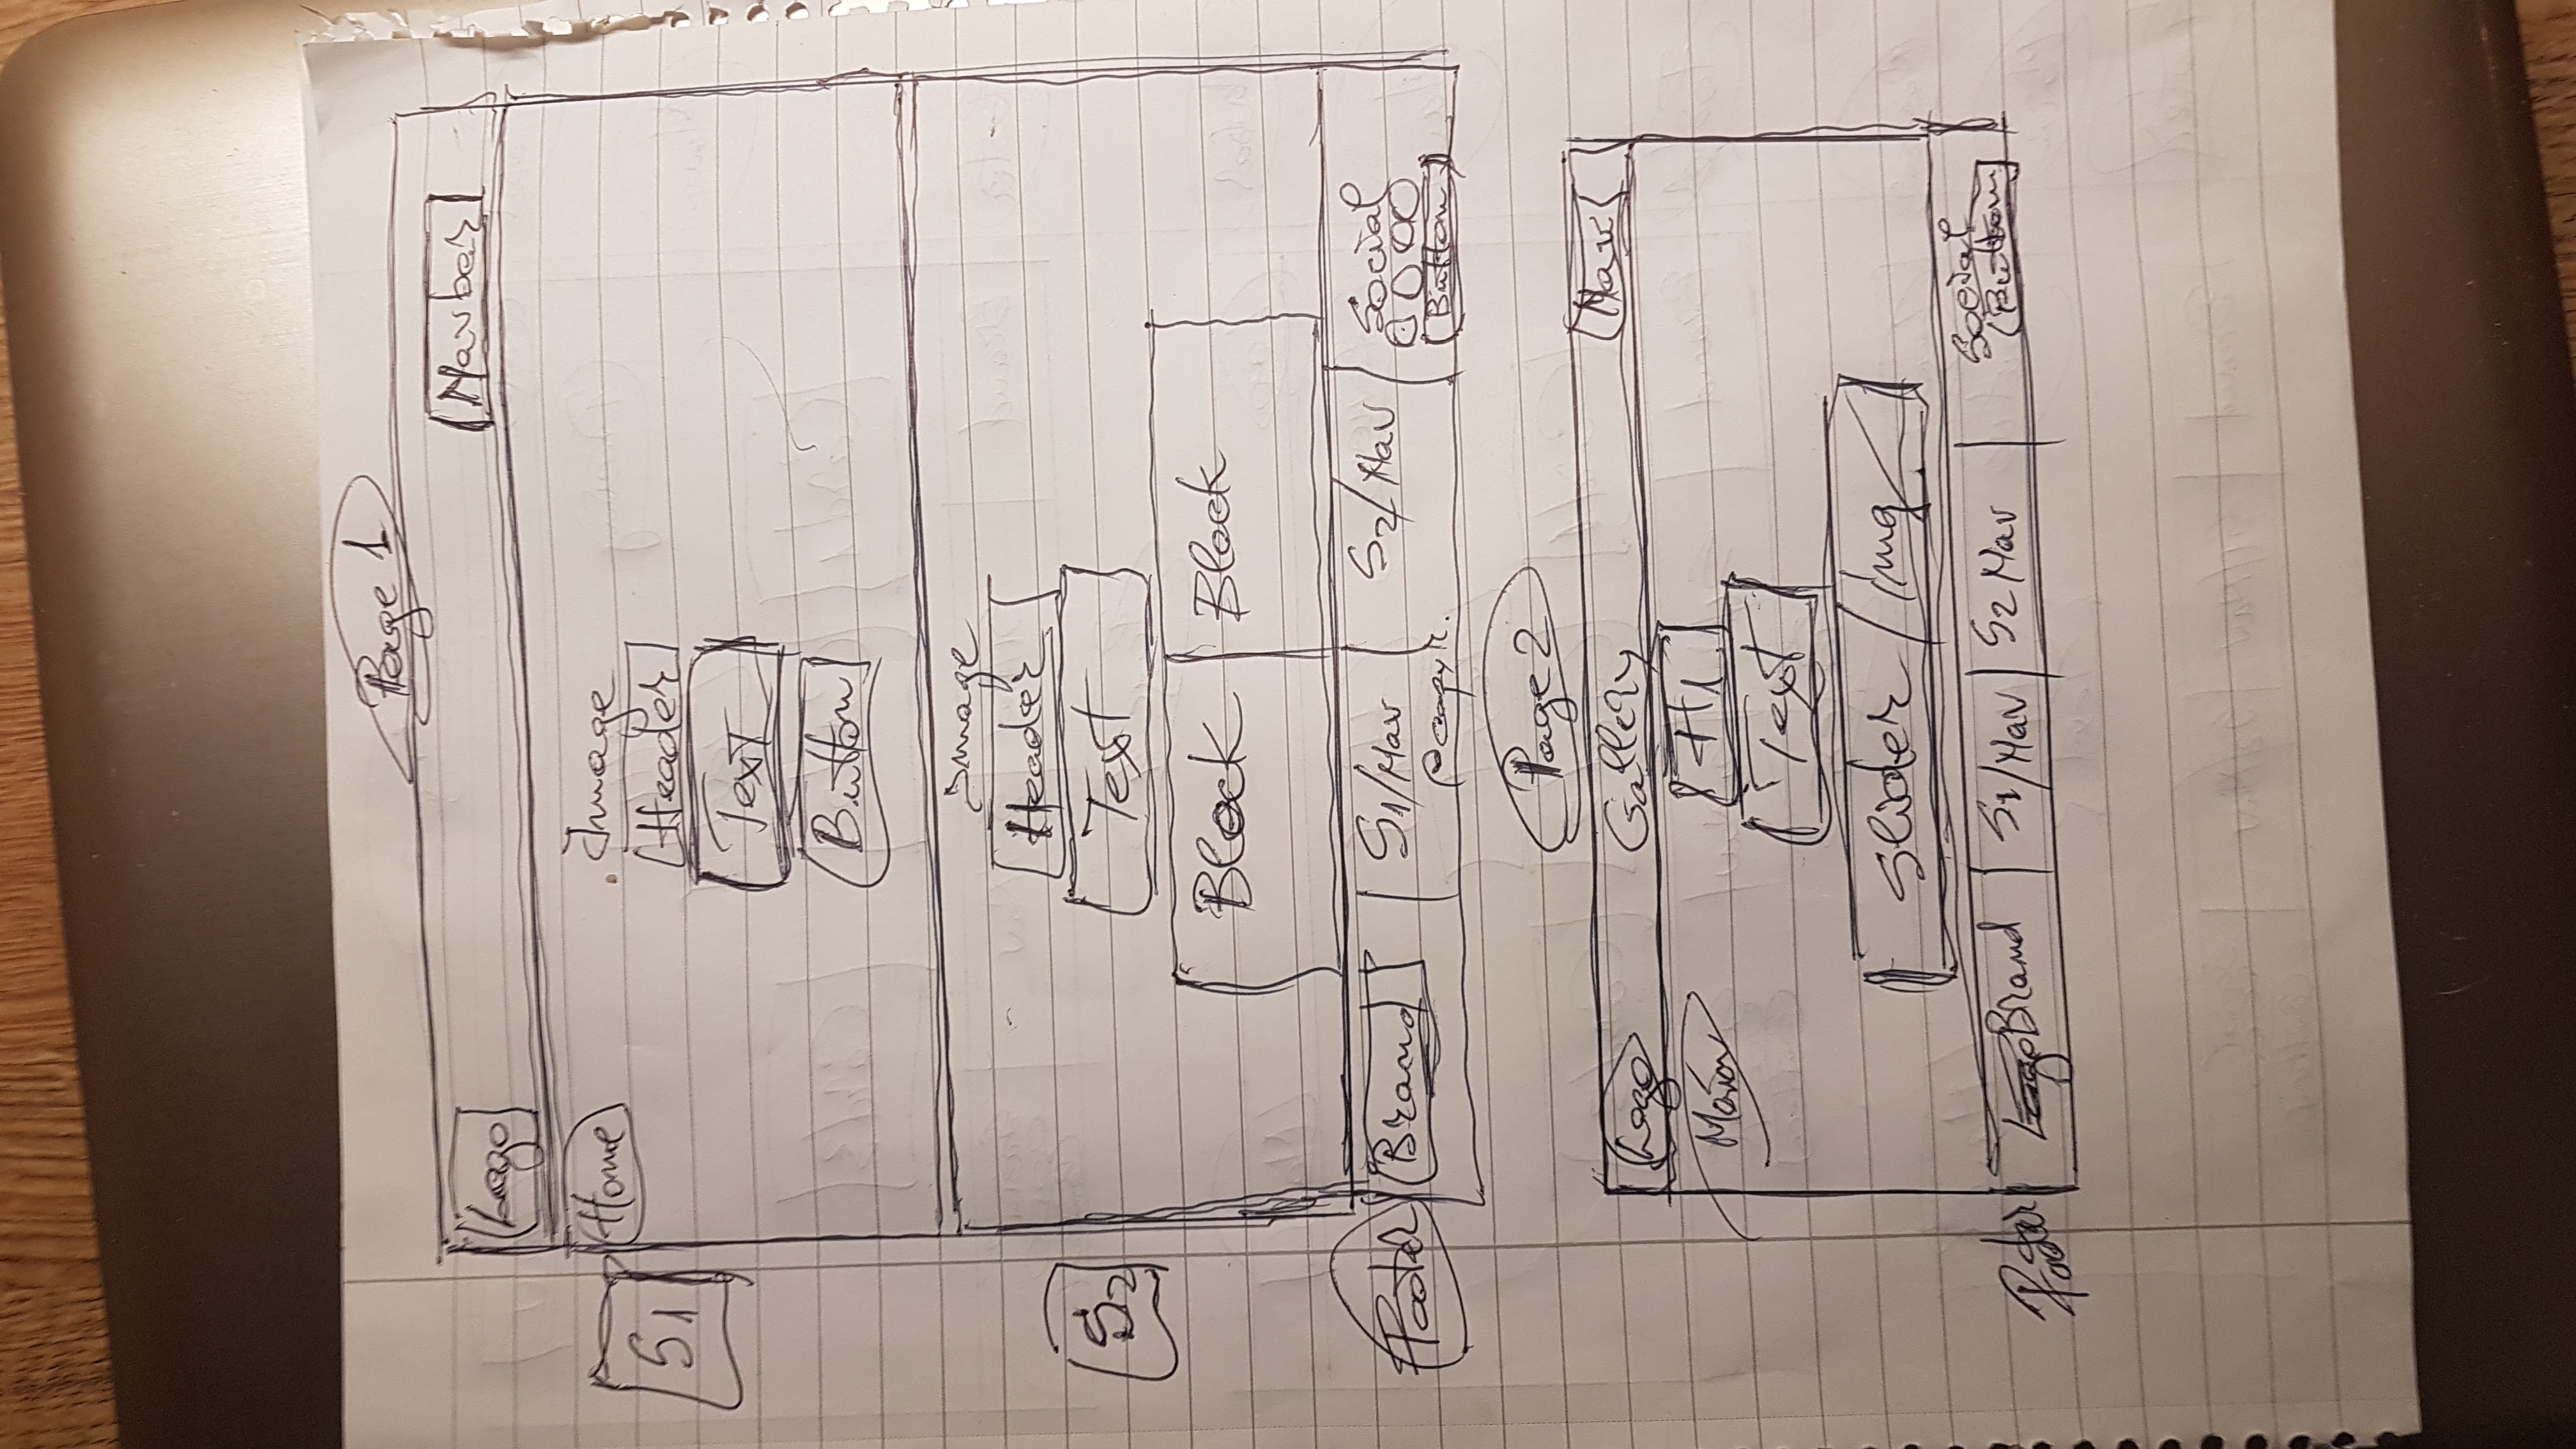 Page 1
Logo Navbar
Home Image
S1 Header
Text
Button
Image
Header
S2 Text
Block Block
Footer Brand S1/Nav S2/Nav Social
© copyr. Button
Page 2
Logo Gallery Nav
Main H1
Text
Slider / img
Footer Brand S1/Nav S2 Nav Social
Button